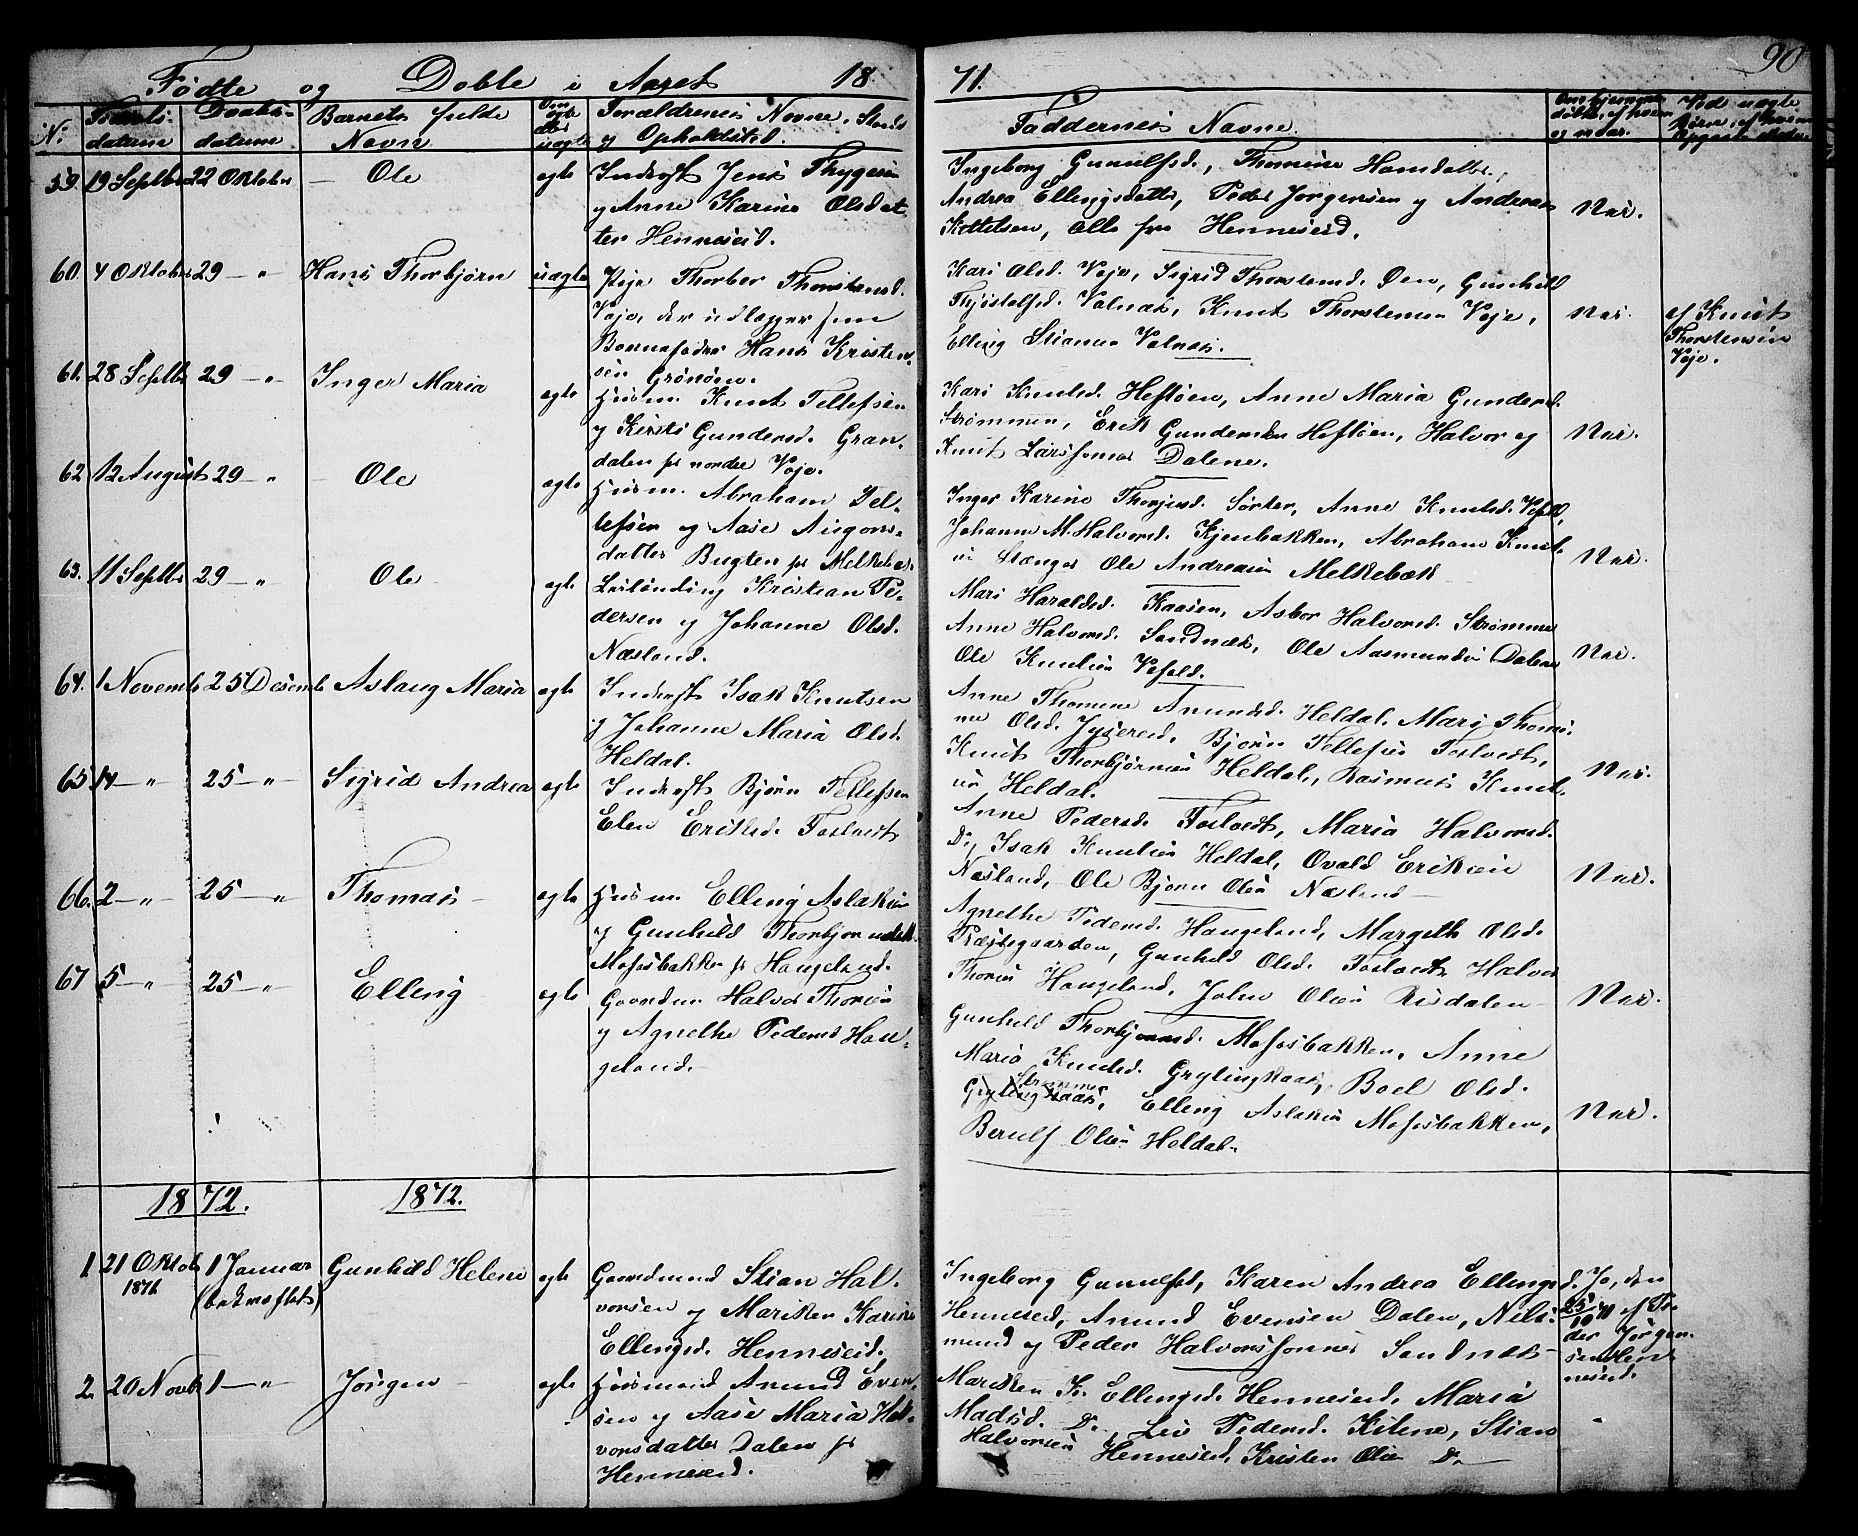 90
Fødte og Døbte i Aaret 1871.
No
Fødsels-
datum
Daabs-
datum
Barnets fulde
Navn
Om
ægte
eller
uægte
Forældrenes Navne, Stand
og Opholdssted.
Faddernes Navne.
Om hjemme-
døbt, af hvem
og naar.
Ved uægte
Børn, af hvem
59. 19 Septbr 22 Oktober — Ole ægte
Inderst Jens Thygesen
og Anne Karine Olsdat
ter Henneseid.
Ingeborg Gunulfsd., Thomine Hansdatter,
Andrea Ellingsdatter, Peder Jørgensen og Andreas
Kittelsen, Alle fra Henneseid.
Nei.
60. 4 Oktober 29 — " Hans Thorbjørn uægte
Pige Thorbor Thorstensd.
Veje, der udlægger som
Barnefader Hans Kristen-
sen Grønøen.
Kari Olsd. Veje, Sigrid Thorstensd. Øen, Gunhild
Thjøstolfsd. Valnæs, Knut Thorstensen Veje,
Elling Stiansen Valnæs.
Nei.
af Knut
Thorstensen
Veje.
61. 28 Septbr 29 — " Inger Maria ægte
Husm. Knut Tellefsen
og Kirsti Gundersd. Gran-
dalen pr nordre Veje.
Kari Knutsd. Heftøen, Anne Maria Gundersd.
Strømmen, Erik Gundersen Heftøen, Halvor og
Knut Larssønner Dalene.
Nei.
62. 12 August 29 — " Ole ægte
Husm. Abraham Tel-
lefsen og Aase Augons-
datter Bugten pr Melkebæk
Inger Karine Thorgersd. Sørter, Anne Knutsd. Vefald,
Johanne M. Halvorsd. Kjenbakken, Abraham Knut-
sen Stænges Ole Andreasen Melkebæk
Nei.
63. 11 Septbr 29 — " Ole ægte
Leilænding Kristian Pe-
dersen og Johanne Olsd.
Næsland.
Mari Haraldsd. Kaasen, Asbor Halvorsd. Strømme
Anne Halvorsd. Sandnæs, Ole Aasmundsen Dalene
Ole Knutsen Vefald.
Nei.
64. 1 Novemb 25 Desemb Aslaug Maria ægte
Inderst Isak Knutsen
og Johanne Maria Olsd.
Heldal.
Anne Thomine Amundsd. Heldal. Mari Thomi-
ne Olsd. Jysereid, Bjørn Tellefsen Foslvedt,
Knut Thorbjørnsen Heldal, Rasmus Knut-
sen Heldal.
Nei.
65. 14 — " 25 — " Sigrid Andrea ægte
Inderst Bjørn Tellefsen
Elen Eriksd. Foslvedt
Anne Pedersd. Foslvedt, Maria Halvorsd.
Do, Isak Knutsen Heldal, Ovald Eriksen
Næsland, Ole Bjørn Olsen Næsland —
Nei.
66. 2 — " 25 — " Thomas — ægte
Husm. Elling Aslaksen
og Gunhild Thorbjørnsdatt.
Mosesbakken pr Haugeland.
Agnethe Pedersd. Haugeland, Margethe Olsd.
Præstegaarden, Gunhild Olsd. Foslvedt Halvor
Thorsen Haugeland, John Olsen Risdalen —
Nei.
67 5 — " 25 — " Elling ægte
Gaardm. Halvor Thorsen
og Agnethe Pedersd Hau-
geland.
Gunhild Thorbjørnsd. Mosesbakken, Anne
Maria Knutsd. Grytingkaas, Boel Olsd.
Strømme
Grytingkaas, Elling Aslaksen Mosesbakken,
Berulf Olsen Heldal.
Nei.
1872. 1872.
1. 21 Oktob 1 Januar Gunhild Helene ægte
1871 (bekræftet)
Gaardmand Stian Hal-
vorsen og Mariken Karine
Ellingsd. Henneseid.
Ingeborg Gunulfsd, Karen Andrea Ellingsd.
Henneseid, Amund Evensen Dalen, Nils
mund og Peder Halvorssønner Sandnæs —
Ja, den
25/10 71 af Pe-
der Jørgen-
sen Hen-
neseid.
2. 20 Novb 1 — " Jørgen — ægte
Husmand Amund Even-
sen og Aase Maria Hal-
vorsdatter Dalen pr
Henneseid.
Mariken K. Ellingsd. Henneseid, Maria
Madsd. Do, Liv Pedersd. Kilene, Stian
Halvorsen Henneseid, Kristen Olsen Do —